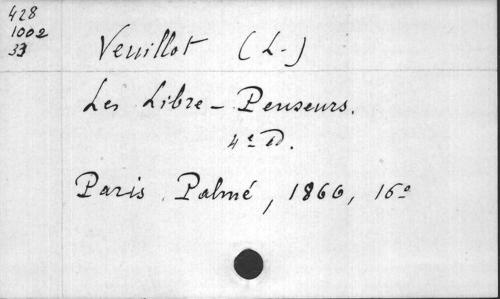 428
1002
33
Veuillot (L-)
Les Libre-Penseurs.
4e D.
Paris Palmé, 1860, 16o